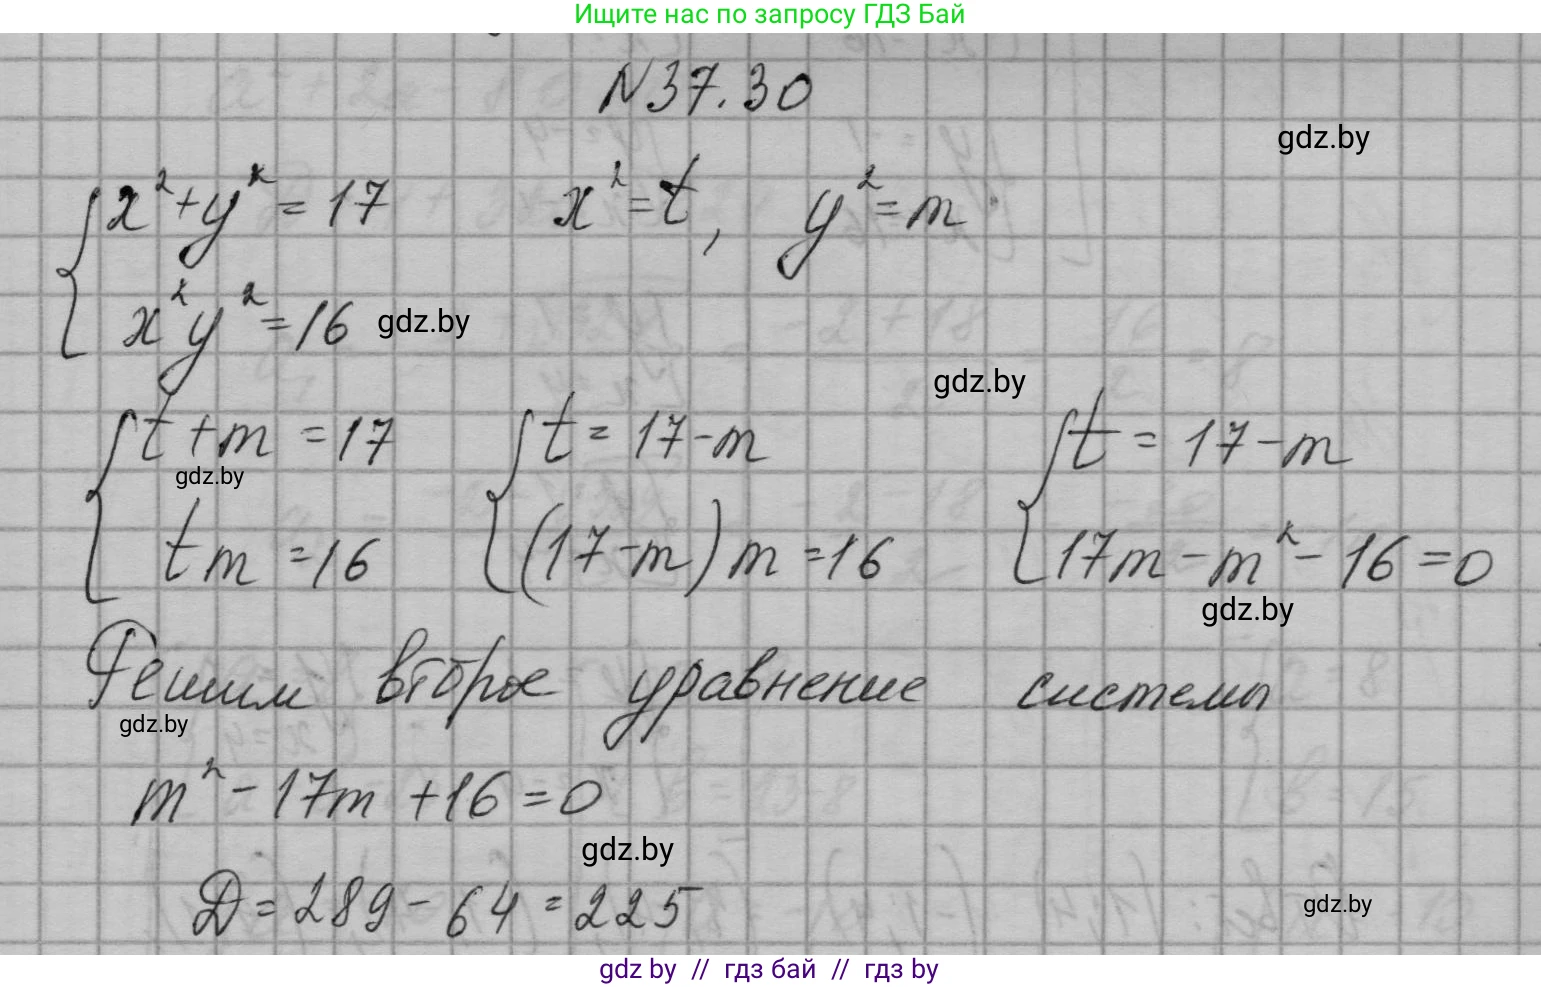 Ищите нас по запросу ГДЗ Бай
N37.30
gdz.by
x²+y²=17 x²=t, y²=m
x²y²=16 gdz.by
gdz.by
t+m=17 t=17-m t=17-m
gdz.by
tm=16 (17-m)m=16 17m-m²-16=0
gdz.by
Решим второе уравнение системы
gdz.by
m²-17m+16=0
gdz.by
Д=289-64=225
gdz.by
gdz by // гдз бай // гдз by